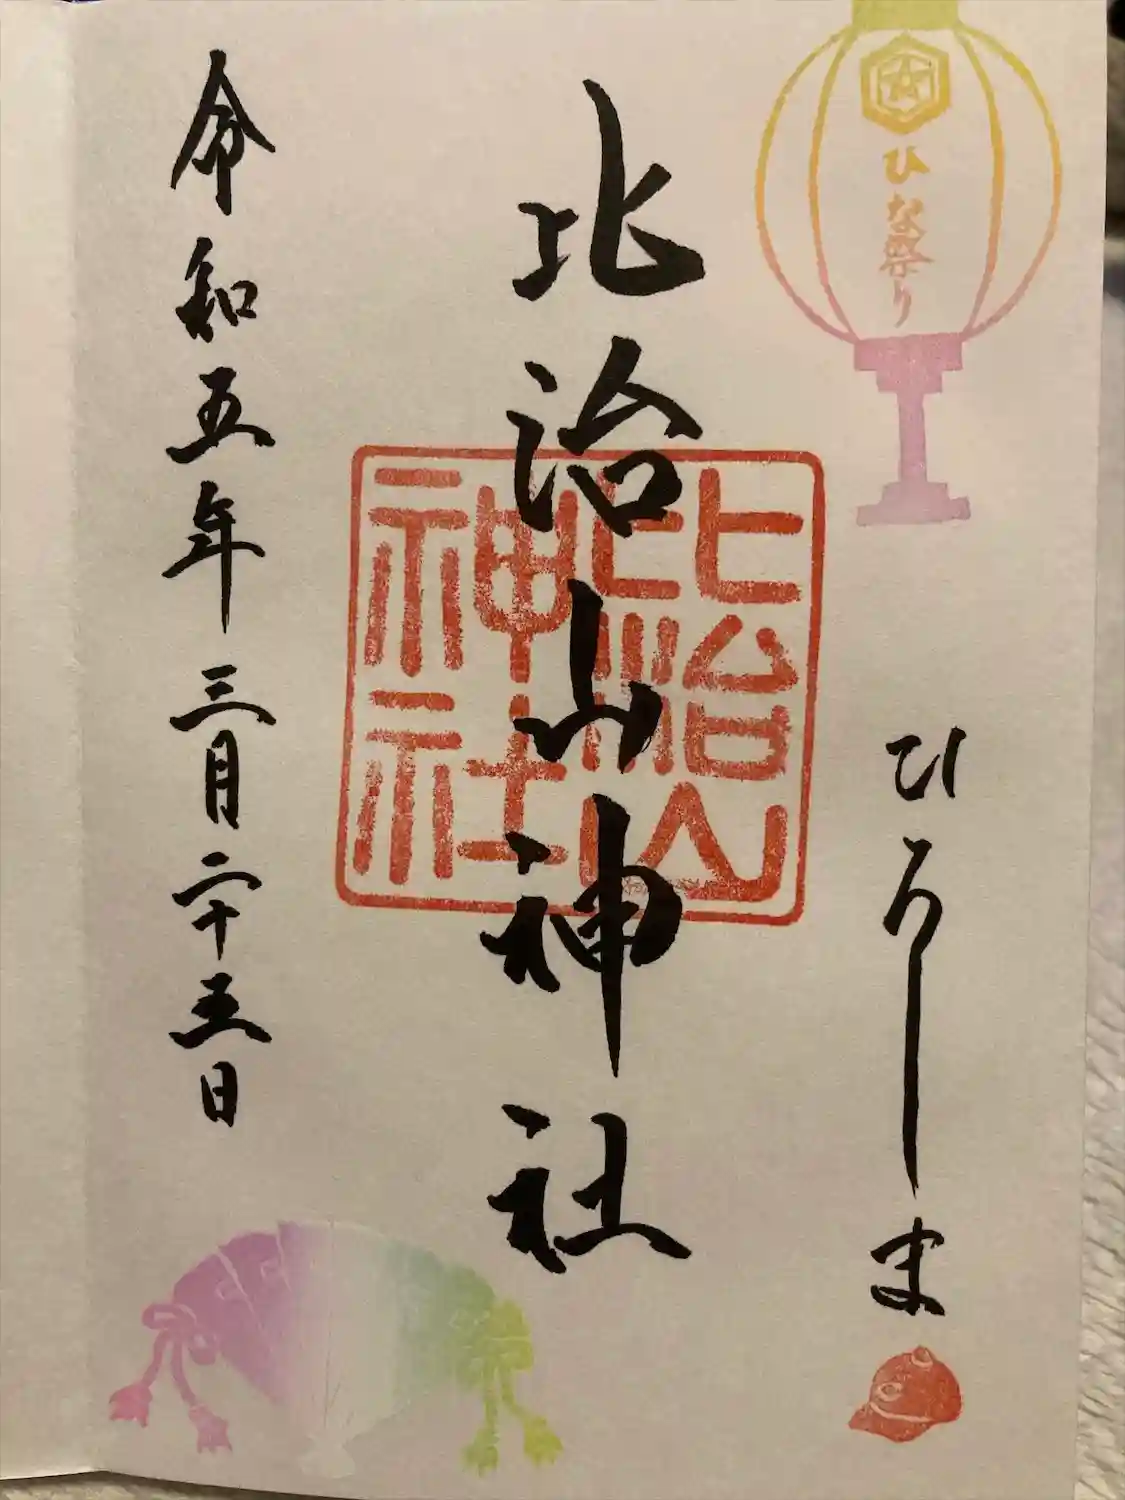 ひな祭り
ひろしま
比治山神社
比治山
神社
令和五年三月二十五日